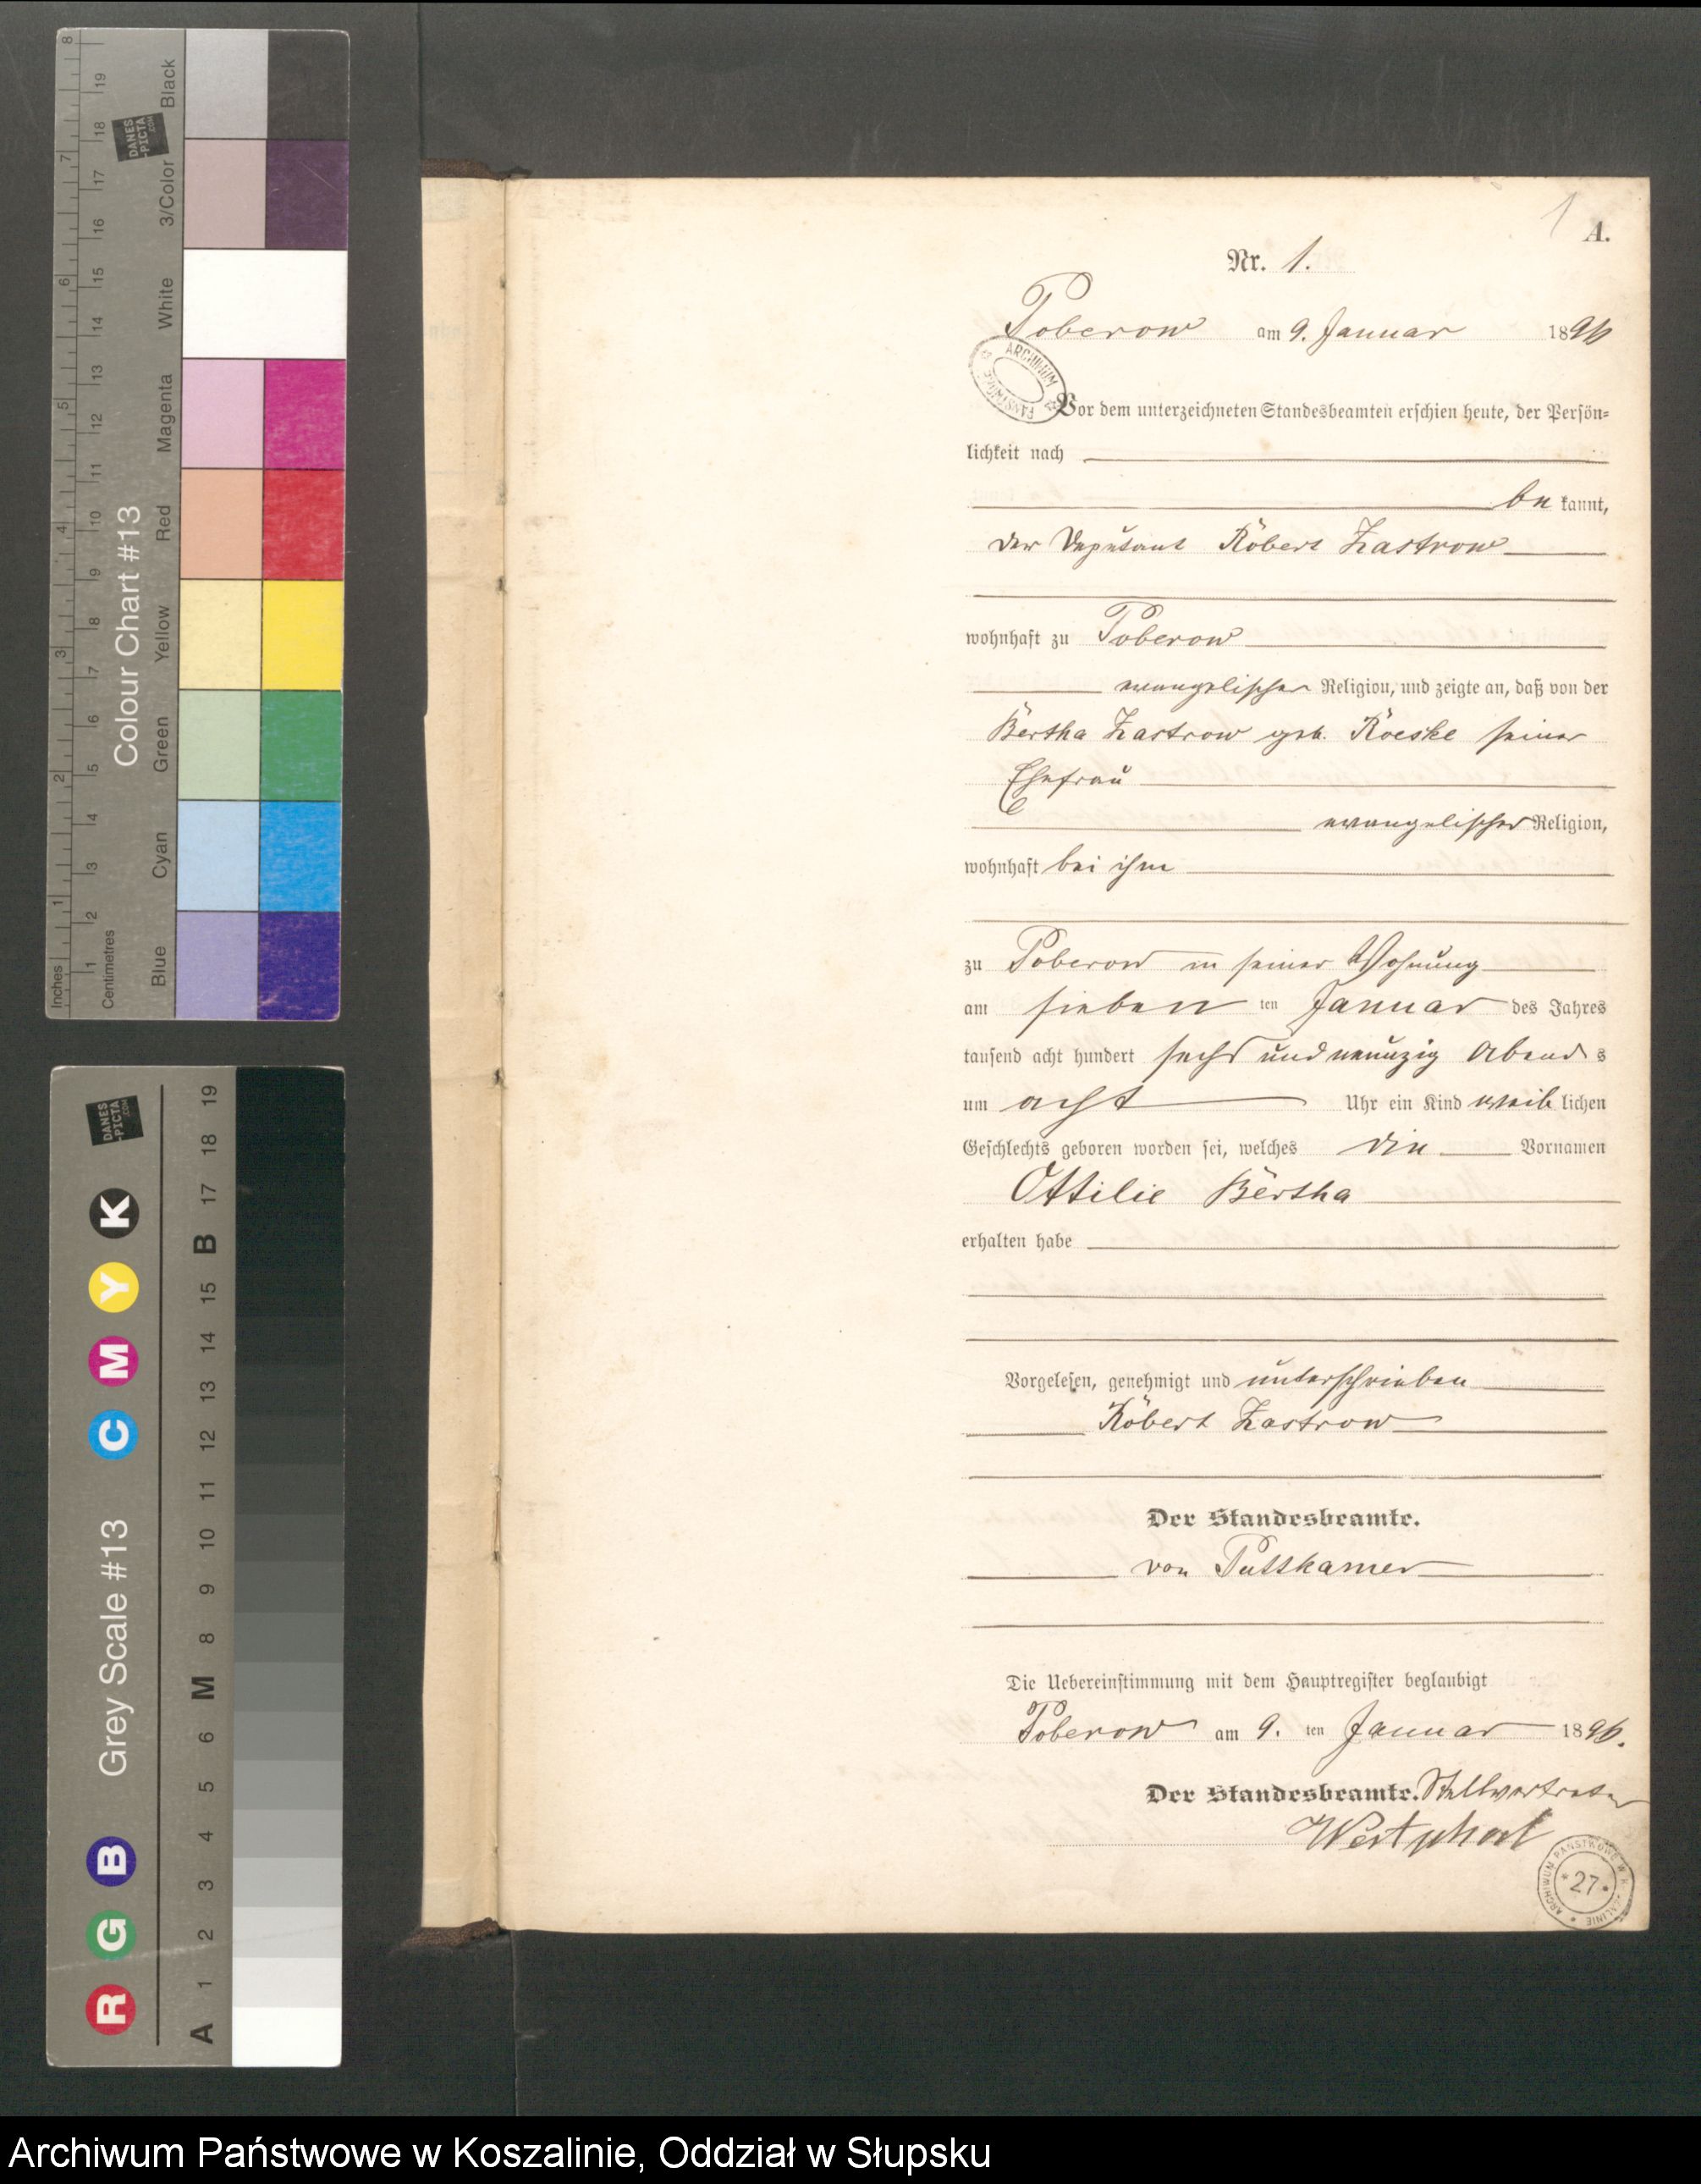 1
A.
Nr. 1.
Poberow am 9. Januar 1896
Vor dem unterzeichneten Standesbeamten erschien heute, der Persön-
lichkeit nach
be kannt,
der Deputant Robert Zastrow
wohnhaft zu Poberow
evangelischer Religion, und zeigte an, daß von der
Bertha Zastrow geb. Roeske seiner
Ehefrau
evangelischer Religion,
wohnhaft bei ihm
zu Poberow in seiner Wohnung
am sieben ten Januar des Jahres
tausend acht hundert sechs und neunzig Abend s
um acht Uhr ein Kind weib lichen
Geschlechts geboren worden sei, welches die Vornamen
Ottilie Bertha
erhalten habe
Vorgelesen, genehmigt und unterschrieben
Robert Zastrow
Der Standesbeamte.
von Puttkamer
Die Uebereinstimmung mit dem Hauptregister beglaubigt
Poberow am 9. ten Januar 1896.
Der Standesbeamte. Stellvertreter
Westphal
ARCHIWUM PAŃSTWOWE
ARCHIWUM PAŃSTWOWE W K
* 27 *
Colour Chart #13
Blue Cyan Green Yellow Red Magenta White 3/Color Black
Inches 1 2 3 4 5 6 7 8
Centimetres 1 2 3 4 5 6 7 8 9 10 11 12 13 14 15 16 17 18 19
DANES
-PICTA
.COM
Grey Scale #13
R G B C M Y K
A 1 2 3 4 5 6 M 8 9 10 11 12 13 14 15 B 17 18 19
DANES
-PICTA
.COM
Archiwum Państwowe w Koszalinie, Oddział w Słupsku